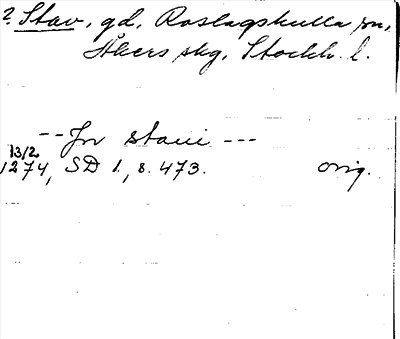 ? Stav, gd, Roslagskulla sn,
Åkers skg, Stockh. l.
-- Jn stawi ---
13/2
1274, SD 1, s. 473. orig.